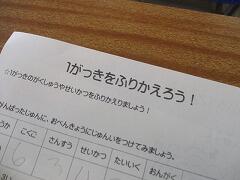 1がっきをふりかえろう！
☆1がっきのがくしゅうやせいかつをふりかえりましょう！
がんばったじゅんに、おべんきょうにじゅんいをつけてみましょう。
こくご さんすう せいかつ たいいく おんがく
6 3